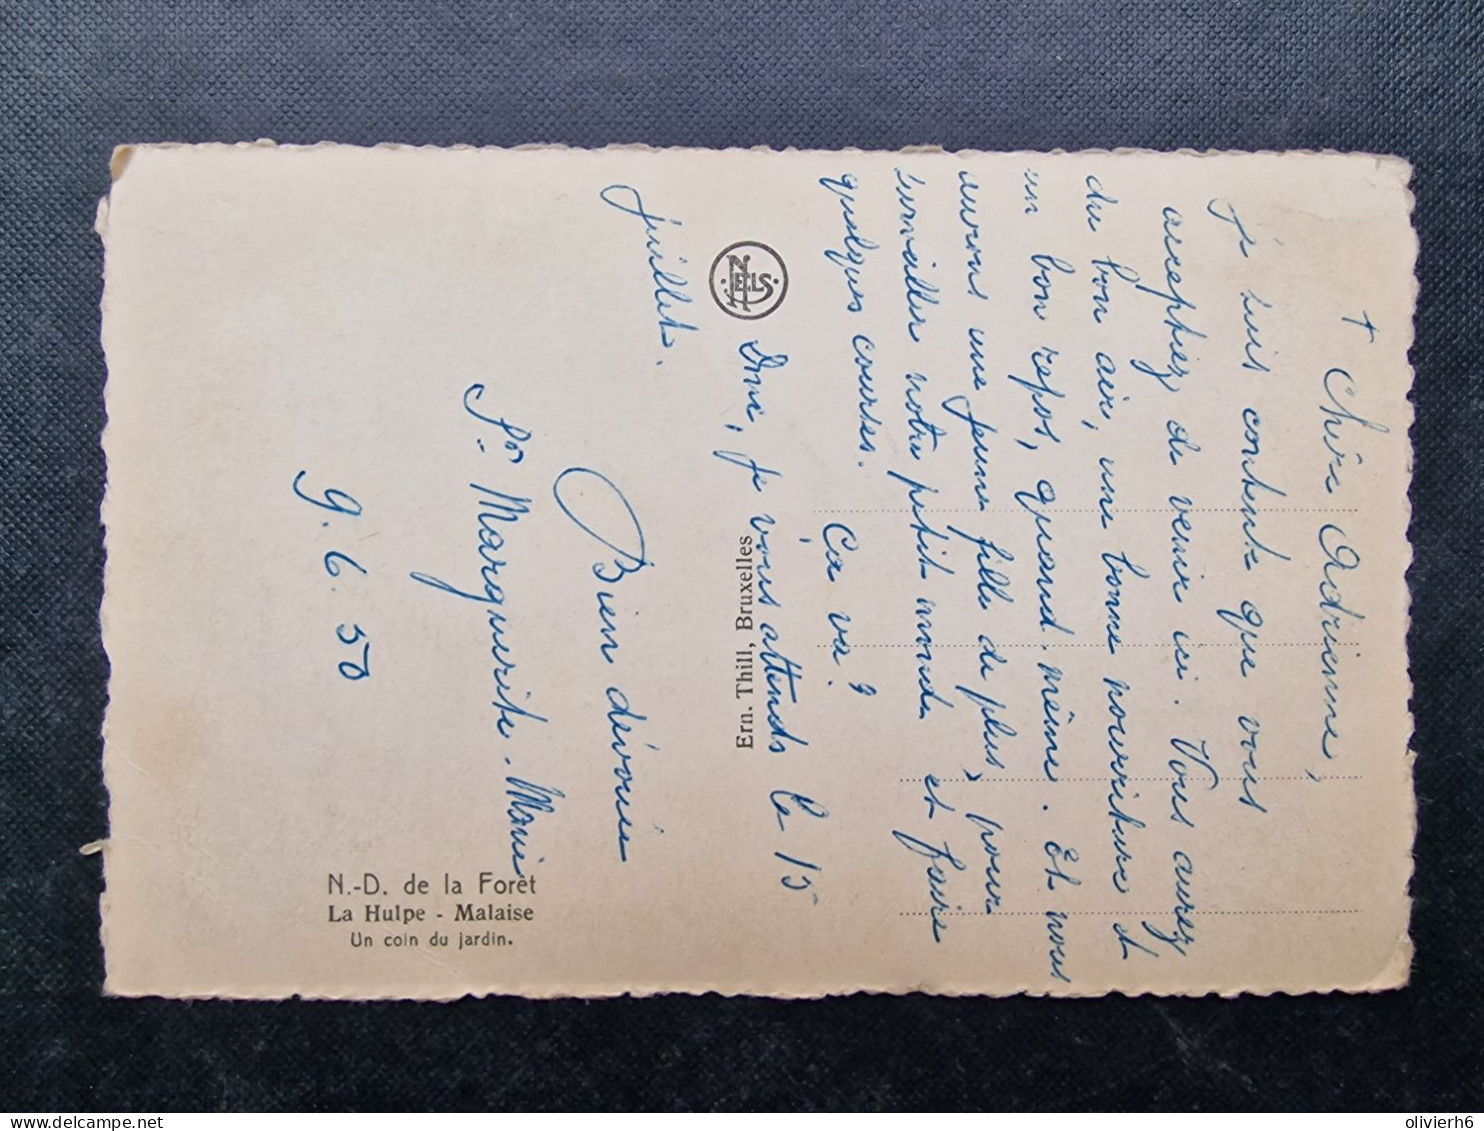 +
Chère Adrienne,
Je suis contente que vous
acceptiez de venir ici. Vous aurez
du bon air, une bonne nourriture et
un bon repos, quand même. Et nous
aurons une jeune fille de plus, pour
surveiller notre petit monde et faire
quelques courses.
Ça va?
Donc, je vous attends le 15
juillet.
Bien dévouée
Sr. Marguerite-Marie
9.6.50
NELS
Ern. Thill, Bruxelles
N.-D. de la Forêt
La Hulpe - Malaise
Un coin du jardin.
olivierh6